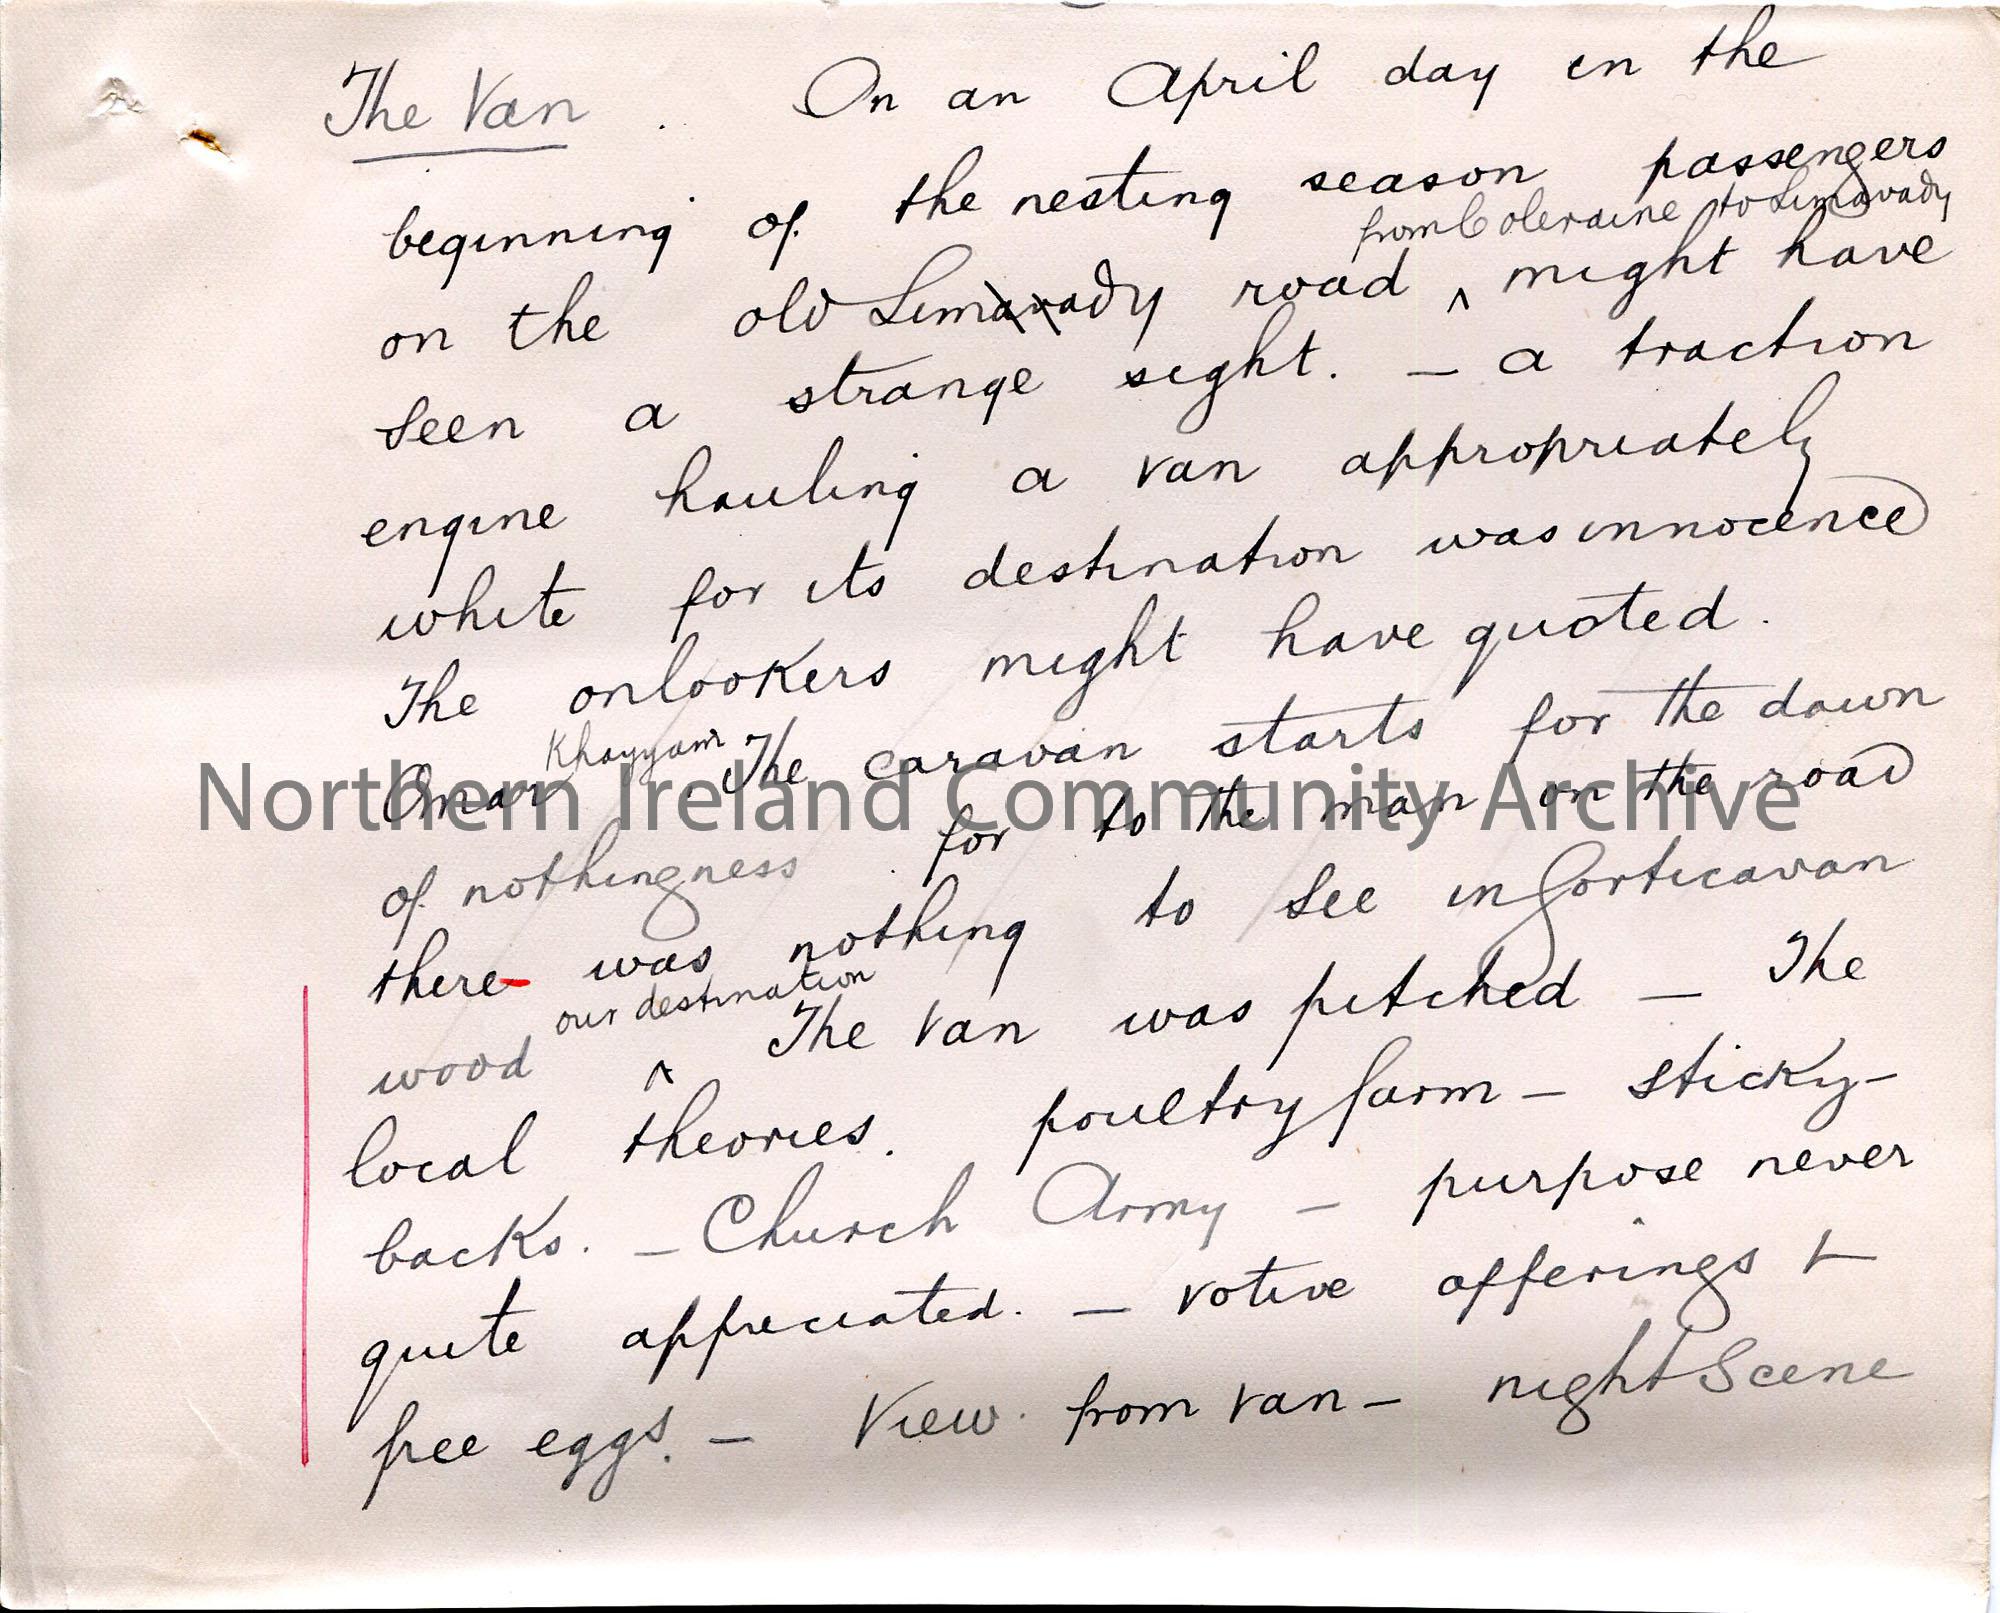 The Van. On an April day in the
beginning of the nesting season passengers
from Coleraine to Limavady
on the old Limavady road ^ might have
seen a strange sight. — a traction
engine hauling a van appropriately
white for its destination was innocence
The onlookers might have quoted.
Omar Khayyam. The caravan starts for the dawn
of nothingness. for to the man on the road
there was nothing to see in Gorticavan
wood ^ our destination The van was pitched — The
local theories. poultry farm — sticky-
backs. — Church Army — purpose never
quite appreciated. — votive offerings &
free eggs. — View from van — night Scene
Northern Ireland Community Archive